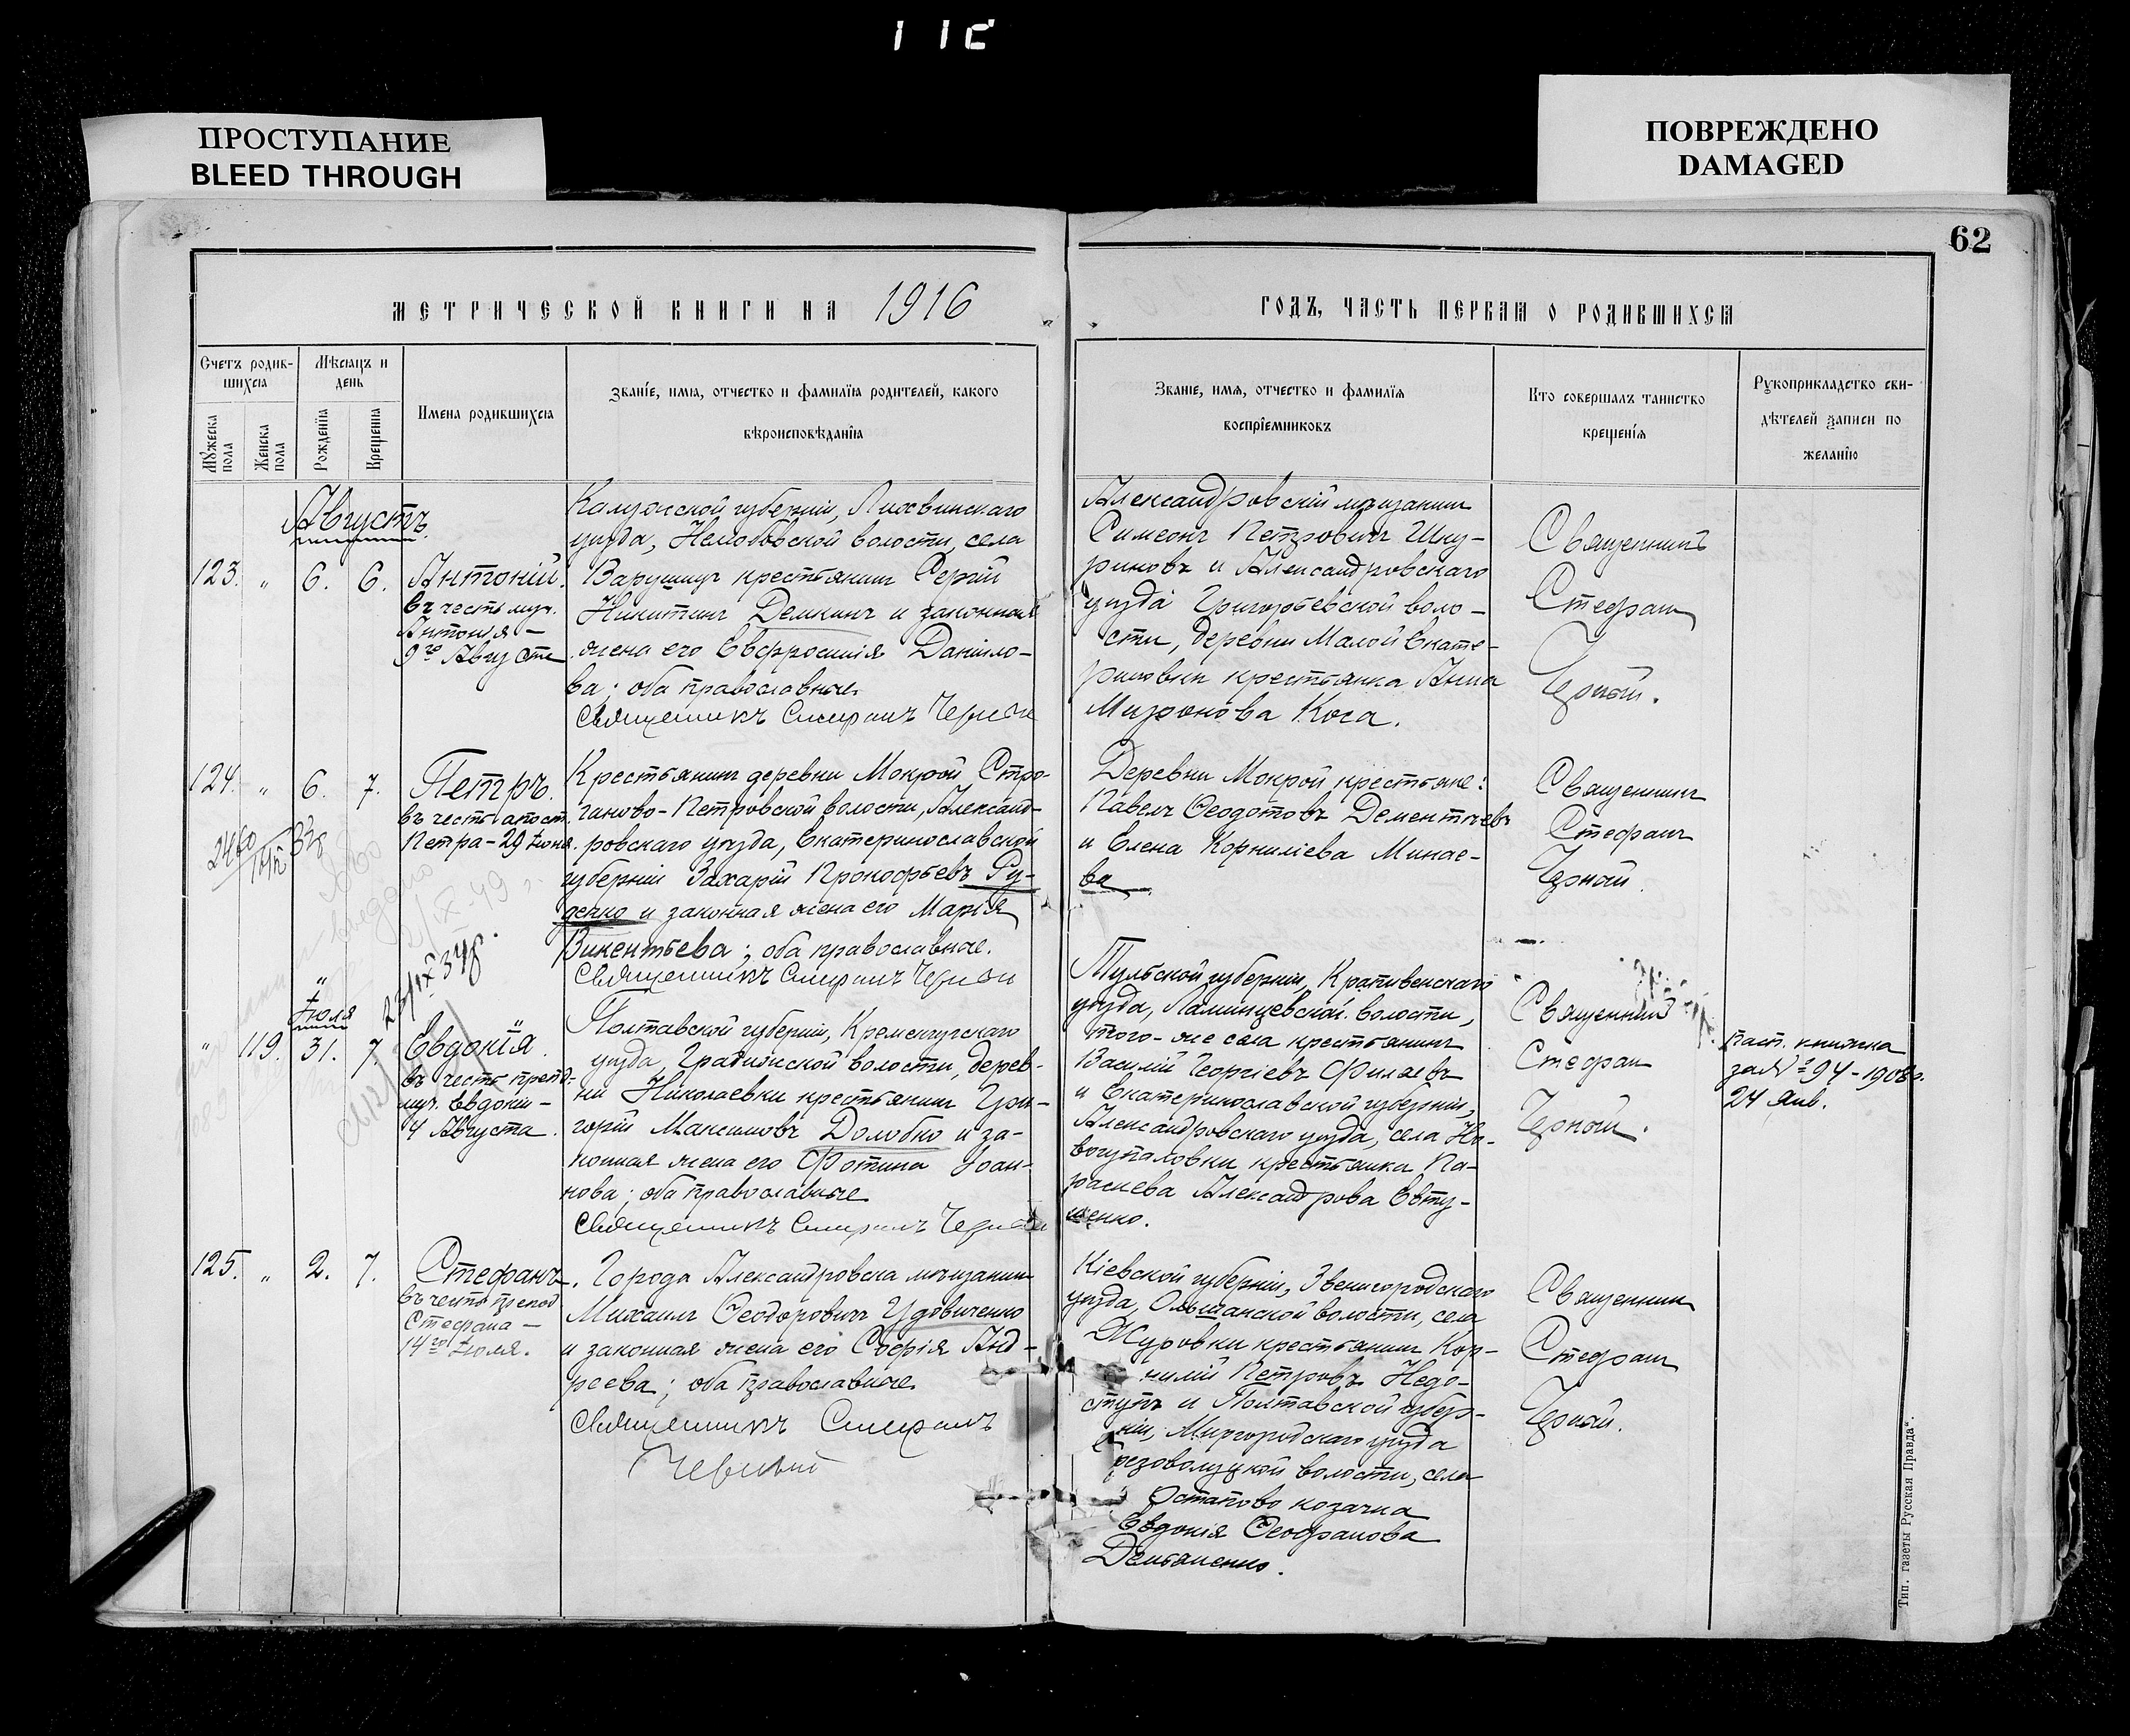 ПРОСТУПАНИЕ
BLEED THROUGH
ПОВРЕЖДЕНО
DAMAGED
62
МЕТРИЧЕСКОЙ КНИГИ НА 1916
ГОДЪ, ЧАСТЬ ПЕРВАЯ О РОДИВШИХСЯ
Счетъ родив-
шихся
Мѣсяцъ и
день
Мужеска
пола
Женска
пола
Рожденія
Крещенія
Имена родившихся
Званіе, имя, отчество и фамилія родителей, какого
вѣроисповѣданія
Званіе, имя, отчество и фамилія
воспріемниковъ
Кто совершалъ таинство
крещенія
Рукоприкладство сви-
дѣтелей записи по
желанію
Августъ.
123. " 6. 6.
Антоній.
въ честь муч.
Антонія -
9го Августа
Калужской губерніи, Лихвинскаго
уѣзда, волости, села
крестьянинъ Сергій
Никитинъ Демкинъ и законная
жена его Евфросинія Данило-
ва; оба православные.
Священникъ Стефанъ Черный
Александровскій мѣщанинъ
Симеонъ Петровичъ Шку-
риновъ и Александровскаго
уѣзда Григорьевской воло-
сти, деревни Малой Екате-
риновки крестьянка Анна
Миронова Коса.
Священникъ
Стефанъ
Черный.
124. " 6. 7.
Петръ.
въ честь апост.
Петра - 29 Іюня.
Крестьянинъ деревни Мокрой Стро-
ганово-Петровской волости, Александ-
ровскаго уѣзда, Екатеринославской
губерніи Захарій Прокофьевъ Ру-
денко и законная жена его Марія
Викентьева; оба православные.
Священникъ Стефанъ Черный
Деревни Мокрой крестьяне:
Павелъ Ѳеодотовъ Дементьевъ
и Елена Корниліева Минае-
ва.
Священникъ
Стефанъ
Черный.
23/IX 37г.
"
Іюля
" 119. 31. 7.
Евдокія.
въ честь препод.
муч. Евдокіи -
4 Августа.
Полтавской губерніи, Кременчугскаго
уѣзда, Градижской волости, дерев-
ни Николаевки крестьянинъ Гри-
горій Максимовъ Долобко и за-
конная жена его Фотина Іоан-
нова; оба православные.
Священникъ Стефанъ Черный
Тульской губерніи, Крапивенскаго
уѣзда, Ламинцевской волости,
того-же села крестьянинъ
Василій Георгіевъ Филаевъ
и Екатеринославской губерніи,
Александровскаго уѣзда, села Но-
вогупаловки крестьянка Па-
раскева Александрова Евту-
шенко.
Священникъ
Стефанъ
Черный.
пасп. книжка
за № 94-1908г.
24 Янв.
125. " 2. 7.
Стефанъ.
въ честь препод
Стефана -
14го Іюля.
Города Александровска мѣщанинъ
Михаилъ Ѳеодоровичъ Удовиченко
и законная жена его Софія Анд-
реева; оба православные.
Священникъ Стефанъ
Черный
Кіевской губерніи, Звенигородскаго
уѣзда, Ольшанской волости, села
Журовки крестьянинъ Кор-
нилій Петровъ Недо-
ступъ и Полтавской губер-
ніи, Миргородскаго уѣзда
волости, села
Остапово козачка
Евдокія Ѳеофанова
Демьяненко.
Священникъ
Стефанъ
Черный.
Тип. газеты Русская Правда".